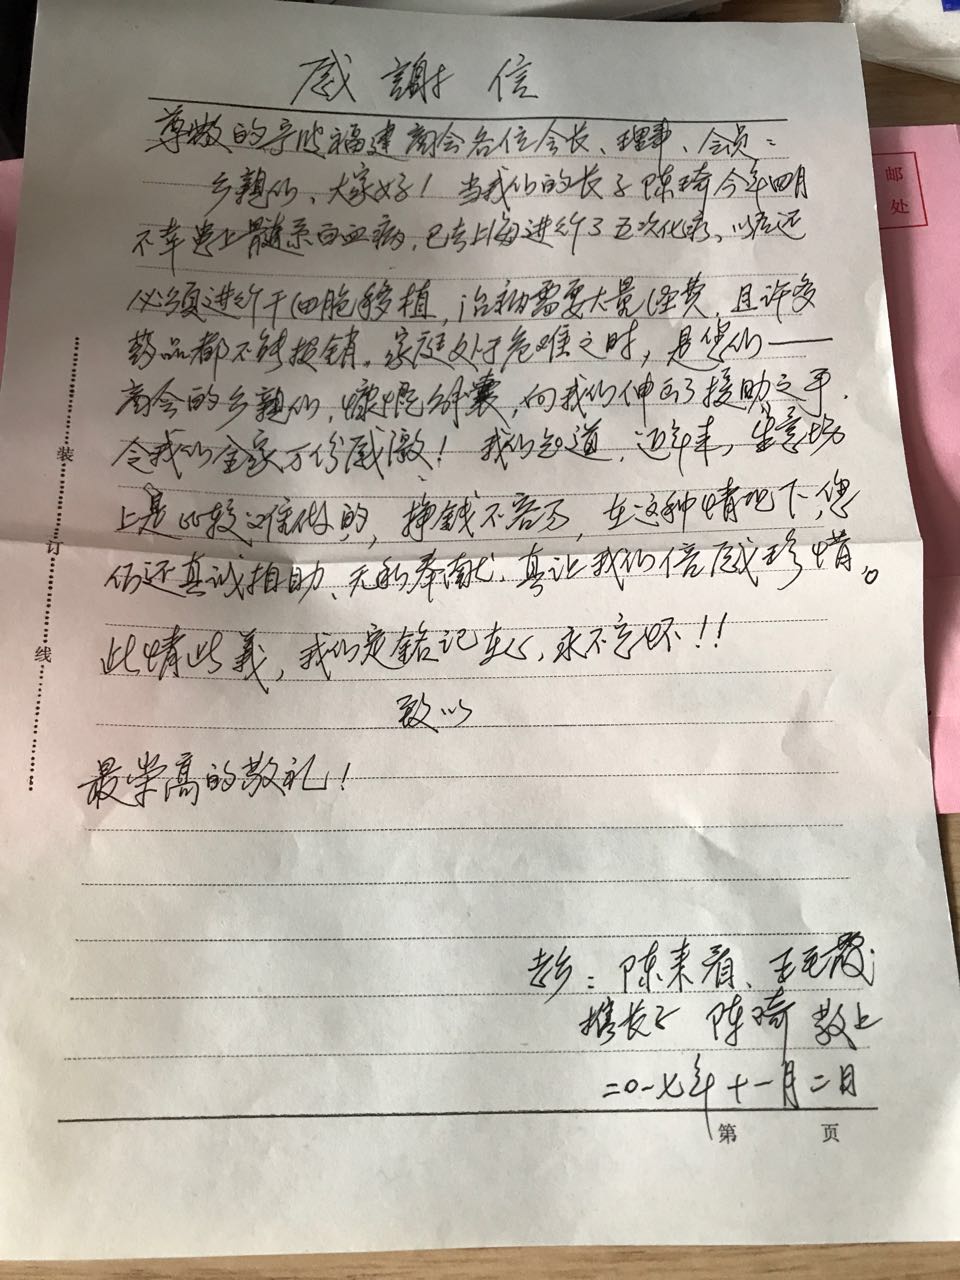 感謝信
尊敬的宁波福建商会各位会长、理事、会员：
乡親们、大家好！当我们的长子陈琦今年四月
不幸患上髓系白血病，已去上海进行了五次化疗、以后还
必须进行干细胞移植，治疗需要大量经费，且许多
药品都不能报销。家庭处于危难之时，是您们——
商会的乡親们，慷慨解囊，向我们伸出了援助之手，
令我们全家万分感激！我们知道，近年来，生意场
上是比较难做的，挣钱不容易，在这种情况下，您
们还真诚相助、无私奉献、真让我们倍感珍惜。
此情此義，我们定銘记在心，永不忘怀！！
致以
最崇高的敬礼！
老乡：陈来眉、王毛霞
携长子 陈琦 敬上
二〇一七年十一月二日
第 页
装
订
线
邮
处